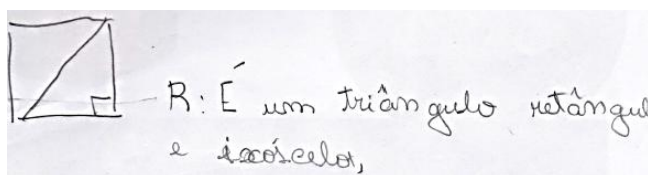 R: É um triângulo retângul
e isóscelos,